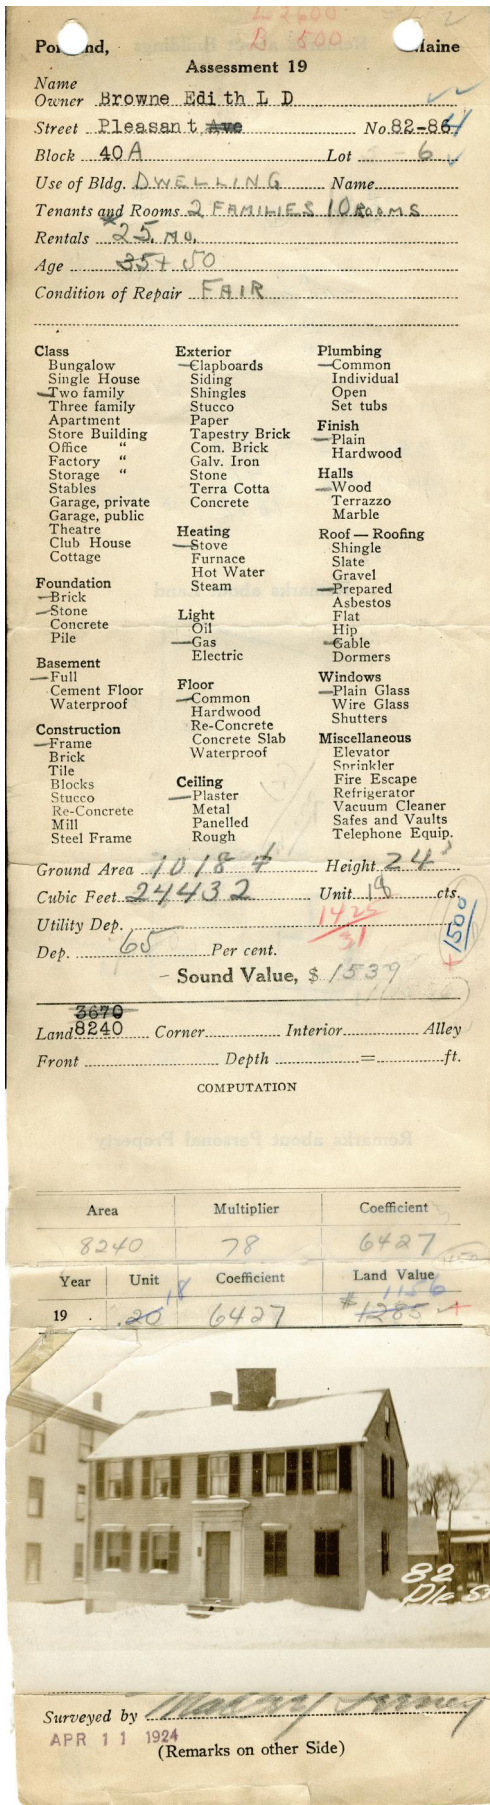 L 2600
B 1500
Portland, Maine
Assessment 19
Name
Owner Browne Edith L D
Street Pleasant Ave No. 82-84
Block 40A Lot 6
Use of Bldg. DWELLING Name
Tenants and Rooms 2 FAMILIES 10 ROOMS
Rentals 25. MO.
Age 35+ 50
Condition of Repair FAIR
Class
Bungalow
Single House
Two family
Three family
Apartment
Store Building
Office "
Factory "
Storage "
Stables
Garage, private
Garage, public
Theatre
Club House
Cottage
Foundation
Brick
Stone
Concrete
Pile
Basement
Full
Cement Floor
Waterproof
Construction
Frame
Brick
Tile
Blocks
Stucco
Re-Concrete
Mill
Steel Frame
Exterior
Clapboards
Siding
Shingles
Stucco
Paper
Tapestry Brick
Com. Brick
Galv. Iron
Stone
Terra Cotta
Concrete
Heating
Stove
Furnace
Hot Water
Steam
Light
Oil
Gas
Electric
Floor
Common
Hardwood
Re-Concrete
Concrete Slab
Waterproof
Ceiling
Plaster
Metal
Panelled
Rough
Plumbing
Common
Individual
Open
Set tubs
Finish
Plain
Hardwood
Halls
Wood
Terrazzo
Marble
Roof — Roofing
Shingle
Slate
Gravel
Prepared
Asbestos
Flat
Hip
Gable
Dormers
Windows
Plain Glass
Wire Glass
Shutters
Miscellaneous
Elevator
Sprinkler
Fire Escape
Refrigerator
Vacuum Cleaner
Safes and Vaults
Telephone Equip.
Ground Area 1018 Height 24
Cubic Feet 24432 Unit 18 cts.
Utility Dep. 1425
31
+1500
Dep. 65 Per cent.
Sound Value, $ 1539
3670
Land 8240 Corner Interior Alley
Front Depth = ft.
COMPUTATION
Area Multiplier Coefficient
8240 78 6427
Year Unit Coefficient Land Value
18 1156
19 .20 6427 # 1285 +
82
Ple St
Surveyed by
APR 11 1924
(Remarks on other Side)